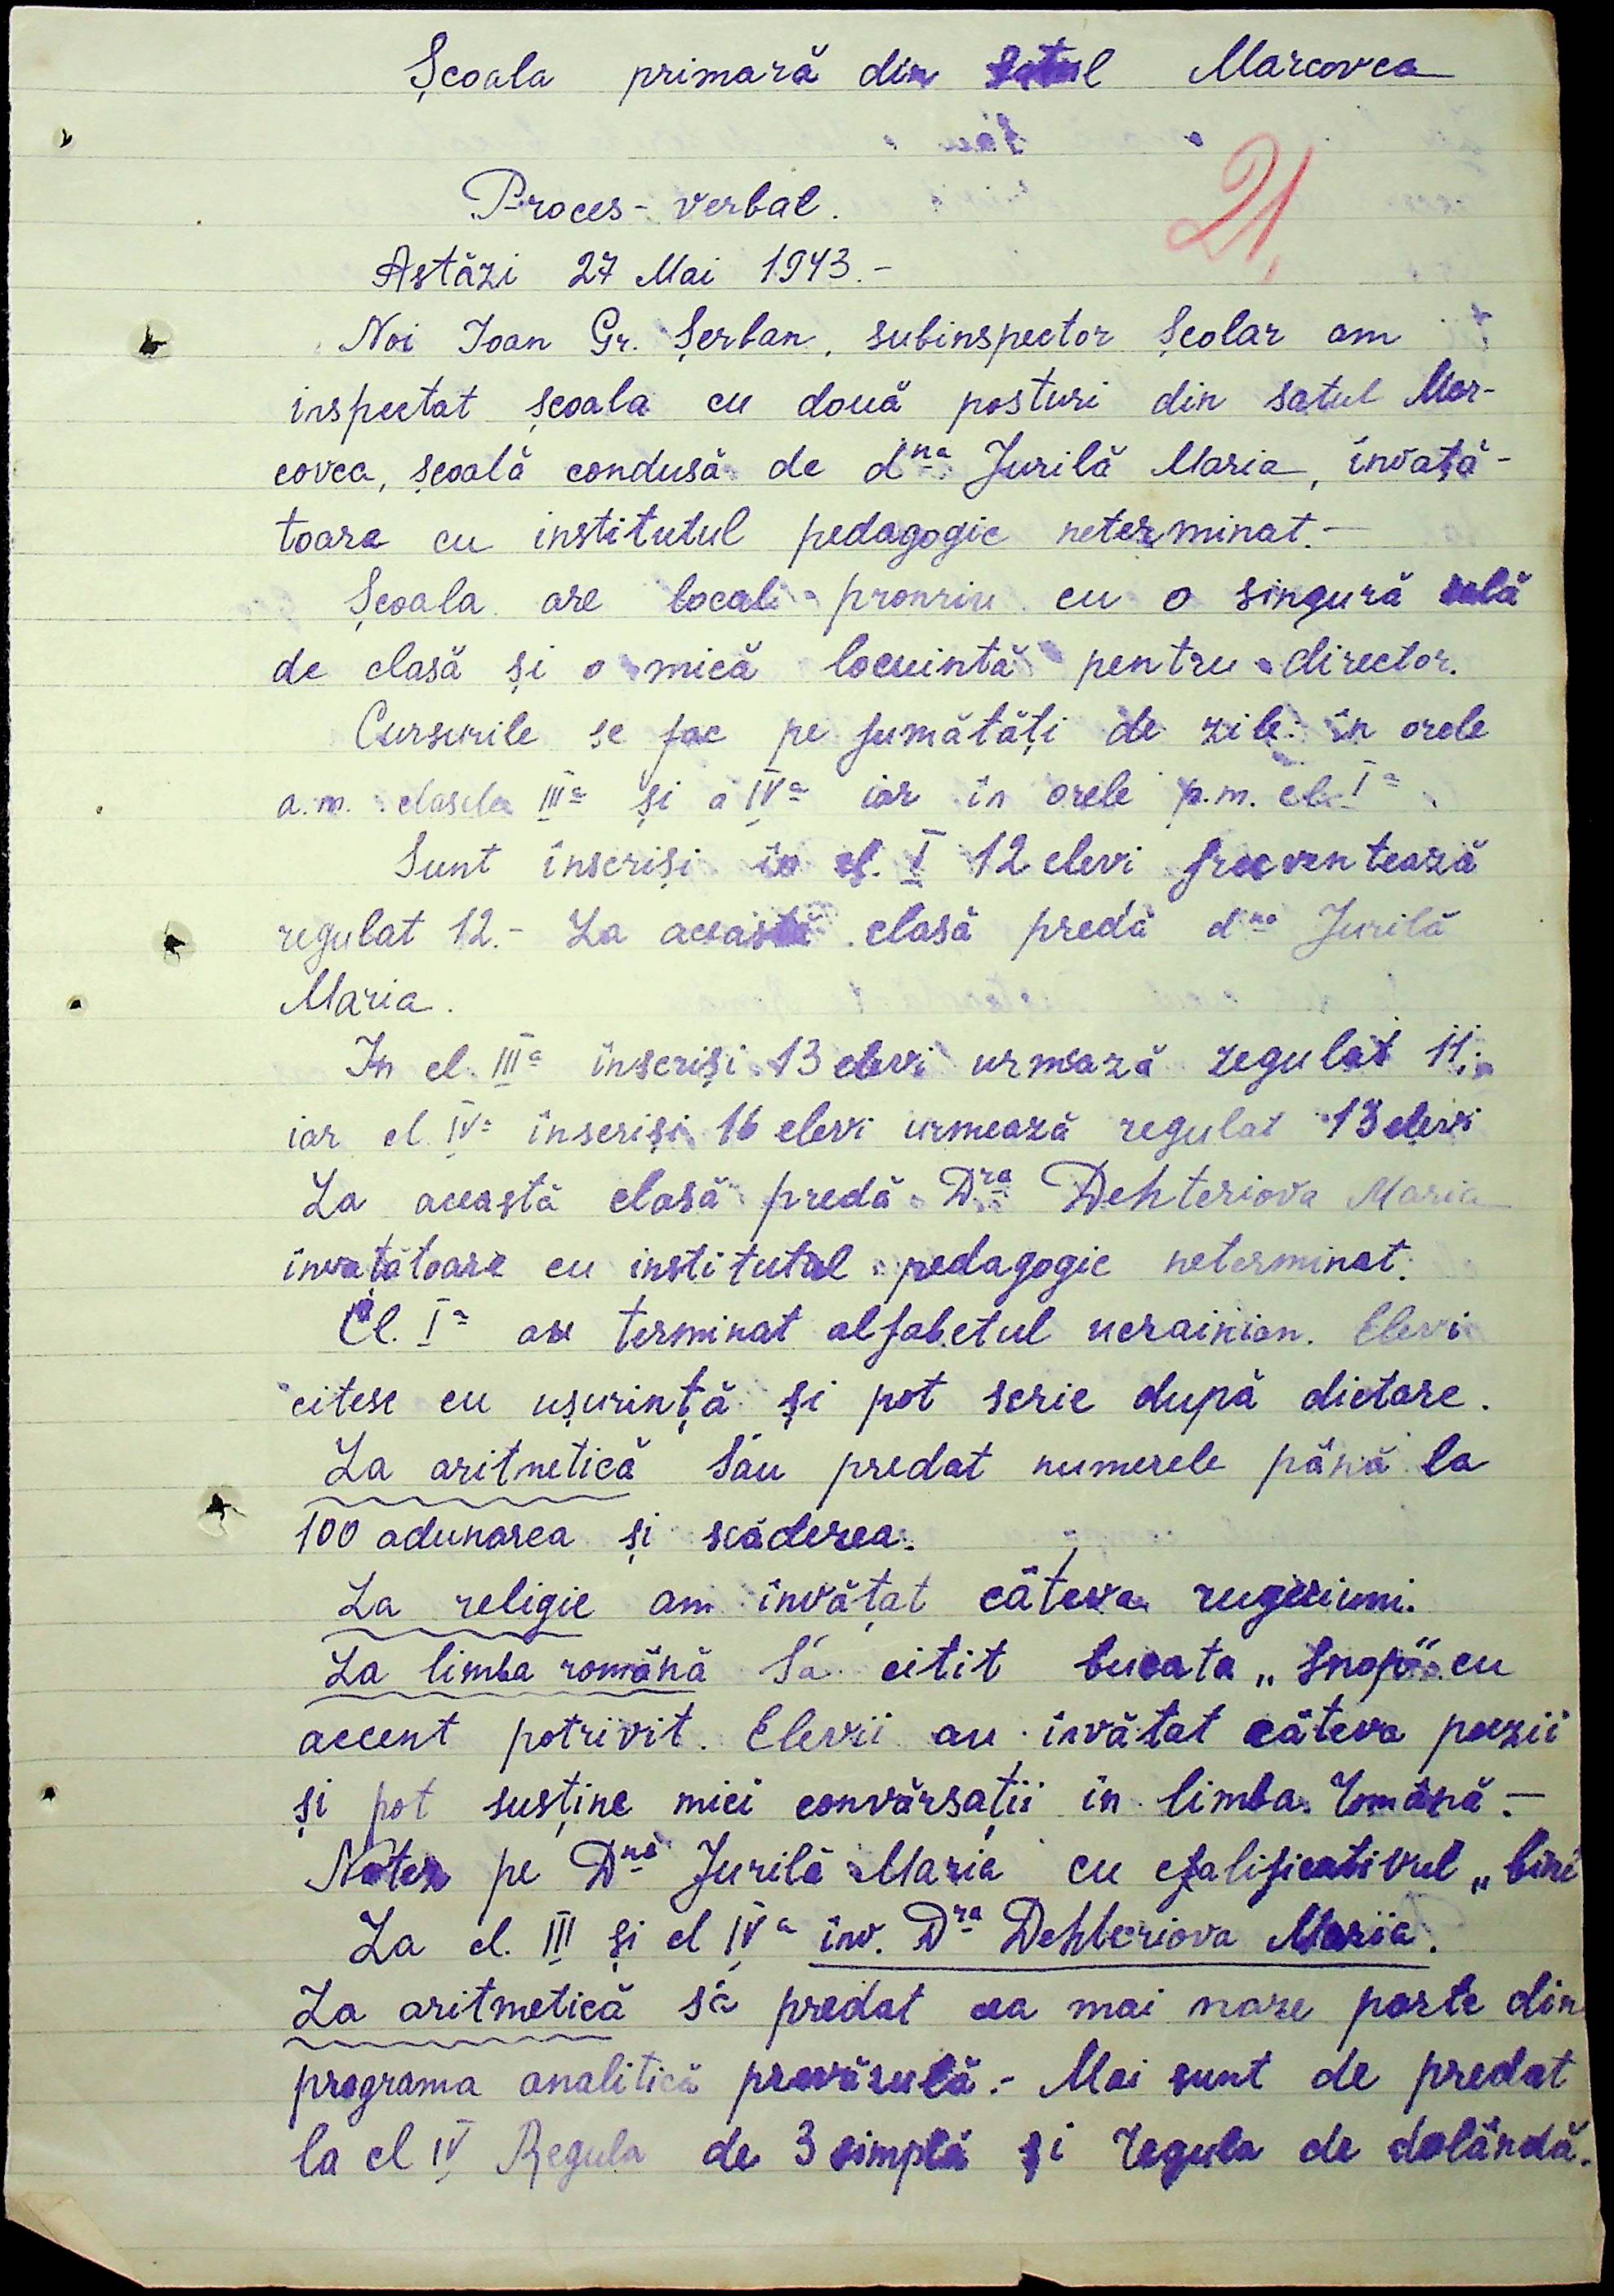 Școala primară din satul Marcovca
21
Proces-verbal.
Astăzi 27 Mai 1943.-
Noi Ioan Gr. Șerban, subinspector Școlar am
inspectat școala cu două posturi din satul Mar-
covca, școală condusă de dna Jurilă Maria, învață-
toare cu institutul pedagogic neterminat.-
Școala are local propriu cu o singură sală
de clasă și o mică locuintă pentru director.
Cursurile se fac pe jumătăți de zile: în orele
a.m. clasele IIIa și a IVa iar în orele p.m. cl. Ia
Sunt înscriși în cl. I 12 elevi frecventează
regulat 12.- La această clasă predă dna Jurilă
Maria.
In cl. IIIa înscriși 13 elevi urmează regulat 11.
iar cl. IVa înscriși 16 elevi urmează regulat 13 elevi
La această clasă predă Dra Dehteriova Maria
învațătoare cu institutul pedagogic neterminat.
Cl. Ia au terminat alfabetul ucrainian. Elevi
citesc cu ușurință și pot scrie după dictare.
La aritmetică S'au predat numerele până la
100 adunarea și scăderea.
La religie am învățat câteva rugăciuni.
La limba română S'a citit bucata „Snopii" cu
accent potrivit. Elevii au învătat câteva poezii
și pot susține mici convărsații in limba Română.-
Notez pe Dna Jurilă Maria cu calificativul „bine
La cl. III și cl IVa înv. Dra Dehteriova Mariia.
La aritmetică s'a predat cea mai mare parte din
programa analitică prevăzulă.- Mai sunt de predat
la cl IV Regula de 3 simplă și regula de dolândă.